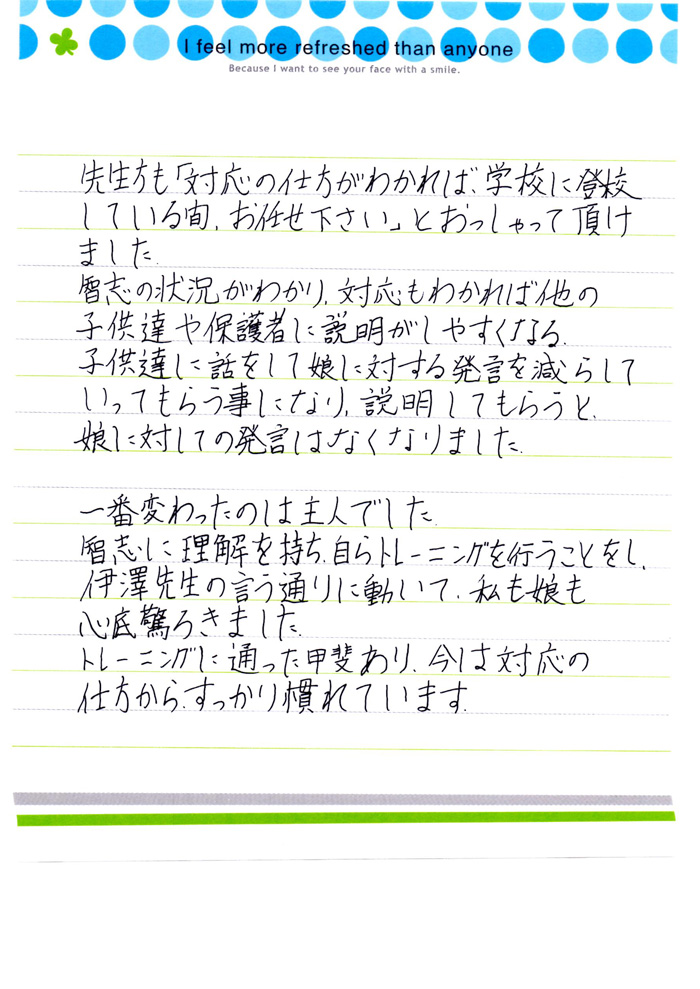 I feel more refreshed than anyone
Because I want to see your face with a smile.
先生方も「対応の仕方がわかれば、学校に登校
している間、お任せ下さい」とおっしゃって頂け
ました。
智志の状況がわかり、対応もわかれば他の
子供達や保護者に説明がしやすくなる。
子供達に話をして娘に対する発言を減らして
いってもらう事になり、説明してもらうと、
娘に対しての発言はなくなりました。
一番変わったのは主人でした。
智志に理解を持ち、自らトレーニングを行うことをし、
伊澤先生の言う通りに動いて、私も娘も
心底驚ろきました。
トレーニングに通った甲斐あり、今は対応の
仕方から、すっかり慣れています。